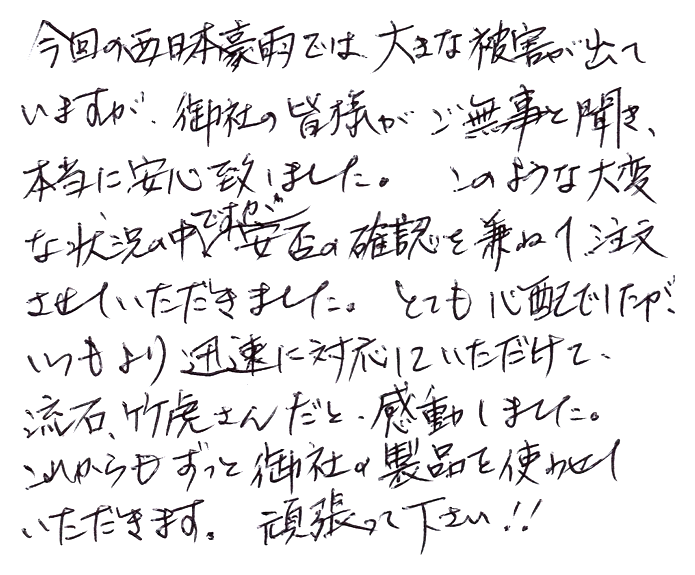 今回の西日本豪雨では大きな被害が出て
いますが、御社の皆様がご無事と聞き、
本当に安心致しました。 このような大変
な状況の中ですが、安否の確認を兼ねて注文
させていただきました。 とても心配でしたが、
いつもより迅速に対応していただけて、
流石、竹虎さんだと、感動しました。
これからもずっと御社の製品を使わせて
いただきます。 頑張って下さい!!